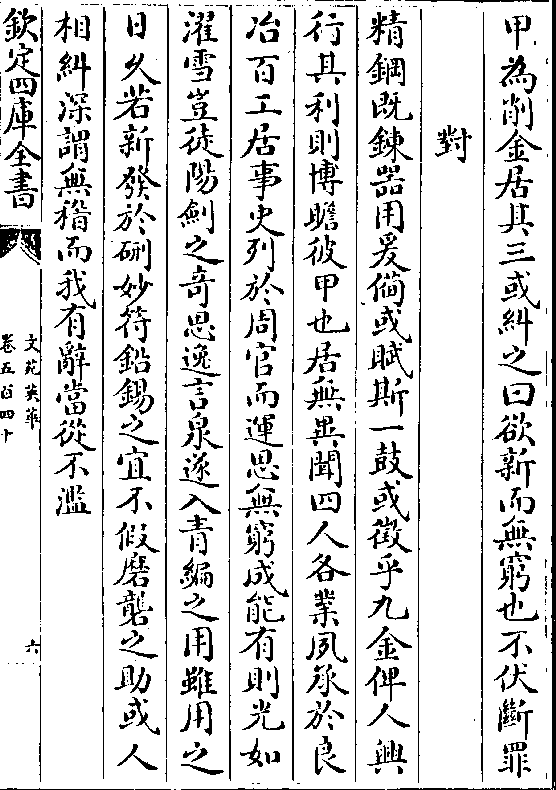 甲為削金居其三或糾之曰欲新而無窮也不伏斷罪
對
精鋼既鍊器用爰備或賦斯一鼓或徵乎九金俾人興
行其利則博瞻彼甲也居無異聞四人各業夙承於良
冶百工居事史列於周官而運思無窮成能有則光如
濯雪豈徒陽劍之奇思逸言泉遂入青編之用雖用之
日久若新發於硎妙符鉛錫之宜不假磨礲之助或人
相糾深謂無稽而我有辭當從不濫
欽定四庫全書
文苑英華
卷五百四十
六